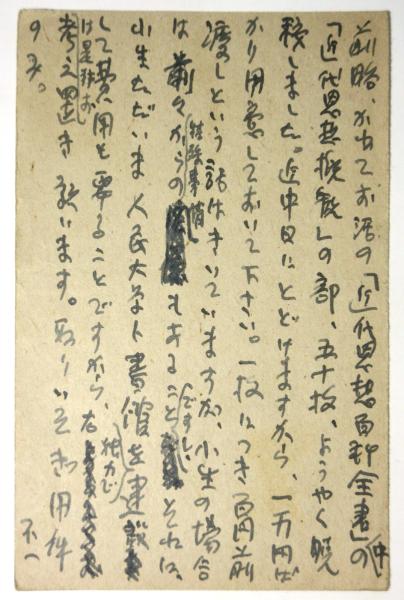 前略、かねてお話の「近代思想百科全書」の中、
「近代思想概観」の部、五十枚、ようやく脱
稿しました。近中日にとどけますから、一万円ば
かり用意しておいて下さい。一枚につき百円前
渡しという話はきいていますが、小生の場合
は前々からの特殊事情もあることですし、それに、
小生ただいま人民大学ト書館を建設
して費用を要することですから、右
は是非お
考え置き願います。取りいそぎ用件
のみ。不一